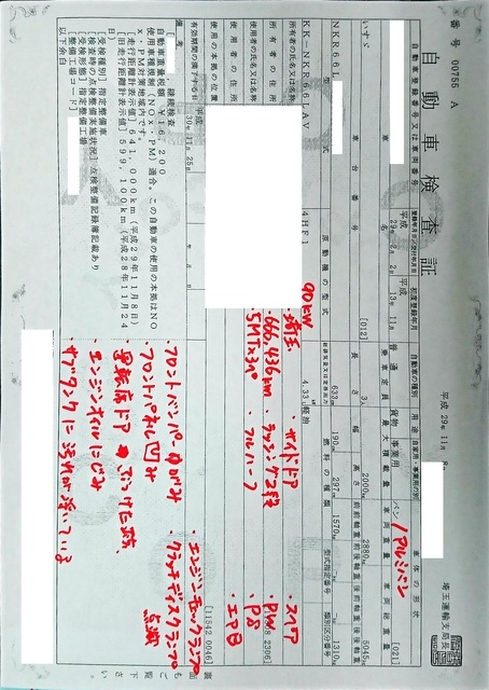 番号 00755 A
自動車検査証
平成 29年 11月 8
埼玉運輸支局長
自動車登録番号又は車両番号
登録年月日/交付年月日
初度登録年月
自動車の種別
用途
自家用・事業用の別
車体の形状
平成 29年 2月 2日
平成 13年 11月
普通
貨物
事業用
バン
/アルミバン
車名
乗車定員
最大積載量
車両重量
車両総重量
いすゞ
[012]
3人
2000kg
2880kg
5045kg
[021]
車台番号
長さ
幅
高さ
前前軸重
前後軸重
後前軸重
後後軸重
NKR66L
633cm
190cm
297cm
1570kg
1310kg
型式
原動機の型式
総排気量又は定格出力
燃料の種類
型式指定番号
類別区分番号
KK-NKR66LAV
4HF1
4.33
軽油
90kW
所有者の氏名又は名称
所有者の住所
使用者の氏名又は名称
使用者の住所
使用の本拠の位置
・埼玉
・サイドドア
・スペア
・666,436km
・ラッシング2段
・P/W
・5MT
・フルハーフ
・PS
・エアB
有効期間の満了する日
平成 30年 11月 25日
年 月 日
[11542 0046]
備考
継続検査
自動車重量税額 ¥16,200
使用車種規制(NOx・PM)適合、この自動車の使用の本拠はNO
x・PM対策地域内です。
[走行距離計表示値] 641,000km(平成29年11月8日)
[旧走行距離計表示値] 599,100km(平成28年11月24
[受検種別] 指定整備車
[検査時の点検整備実施状況] 点検整備記録簿記載あり
[受検形態] 指定整備工場
[整備工場コード]
以下余白
・フロントバンパーゆがみ
・フロントパネル凹み
・運転席ドア ぶつけた跡
・エンジンオイルにじみ
・サブタンクに汚れが浮いている
・エンジンチェックランプ
・クラッチディスクランプ
点滅
裏面もご覧下さい